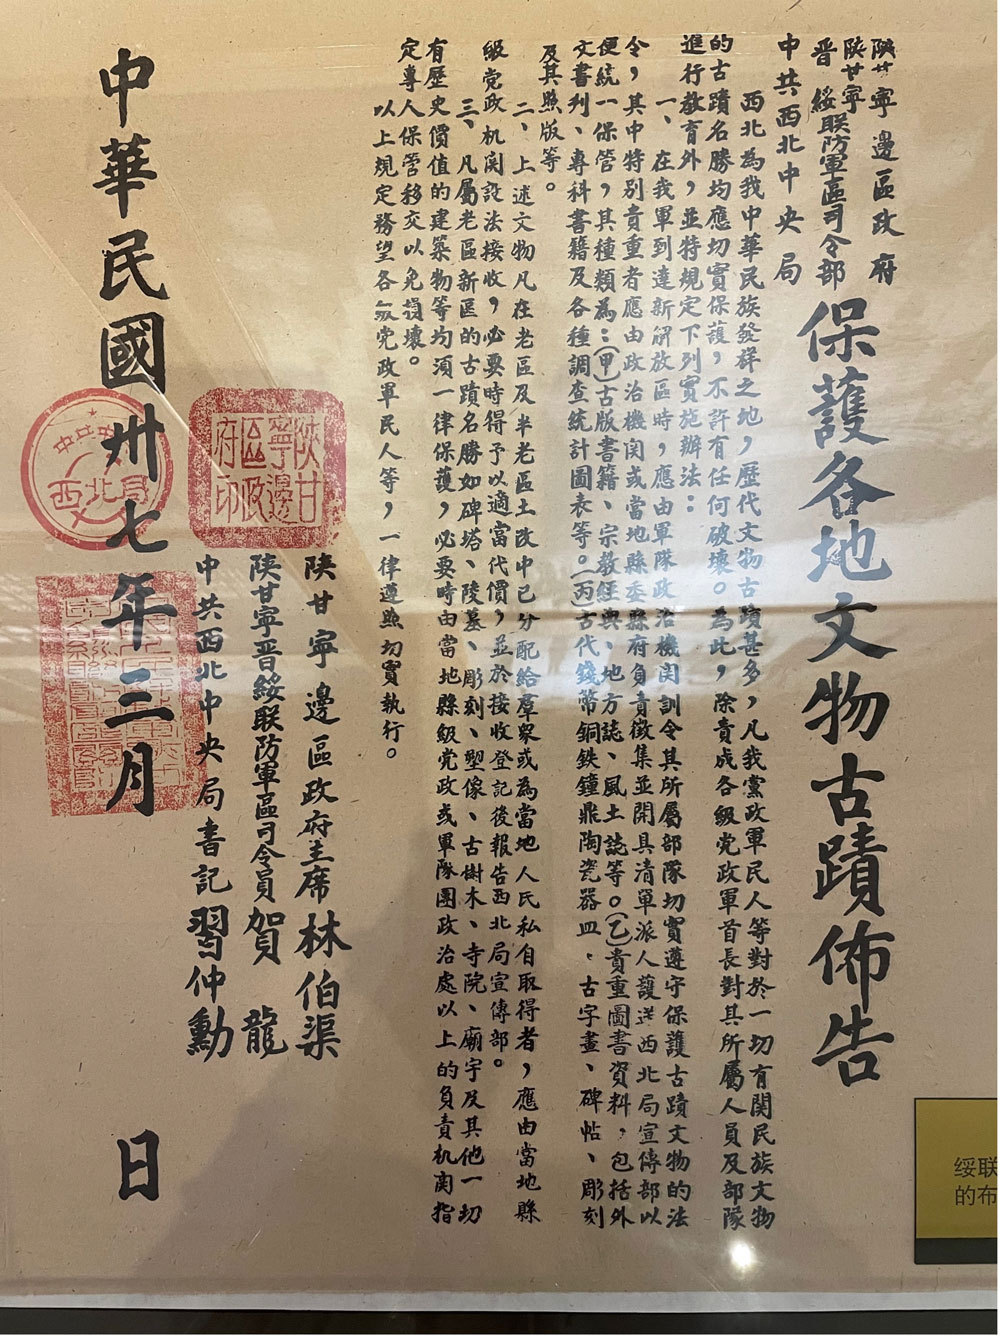 陕甘寧邊區政府
陕甘寧晋綏联防軍區司令部
中共西北中央局
保護各地文物古蹟佈告
西北為我中華民族發祥之地，歷代文物古蹟甚多，凡我黨政軍民人等對於一切有関民族文物
的古蹟名勝均應切實保護，不許有任何破壞。為此，除責成各級党政軍首長對其所屬人員及部隊
進行教育外，並特規定下列實施辦法：
一、在我軍到達新解放區時，應由軍隊政治機関訓令其所屬部隊切實遵守保護古蹟文物的法
令，其中特別貴重者應由政治機関或當地縣委縣府負責徵集並開具清單派人護送西北局宣傳部以
便統一保管，其種類為：(甲)古版書籍、宗教經典、地方誌、風土誌等。(乙)貴重圖書資料，包括外
文書刋、專科書籍及各種調查統計圖表等。(丙)古代錢幣銅鉄鐘鼎陶瓷器皿、古字畫、碑帖、彫刻
及其照版等。
二、上述文物凡在老區及半老區土改中已分配給羣眾或為當地人民私自取得者，應由當地縣
級党政机関設法接收，必要時得予以適當代價，並於接收登記後報告西北局宣傳部。
三、凡屬老區新區的古蹟名勝如碑塔、陵墓、彫刻、塑像、古樹木、寺院、廟宇及其他一切
有歷史價值的建築物等均須一律保護，必要時由當地縣級党政或軍隊團政治處以上的負責机関指
定專人保管移交以免損壞。
以上規定務望各級党政軍民人等，一律遵照切實執行。
陕甘寧邊區政府主席林伯渠
陕甘寧晋綏联防軍區司令員賀龍
中共西北中央局書記習仲勳
陕甘寧邊區政府印
中華民國卅七年三月 日
绥联
的布